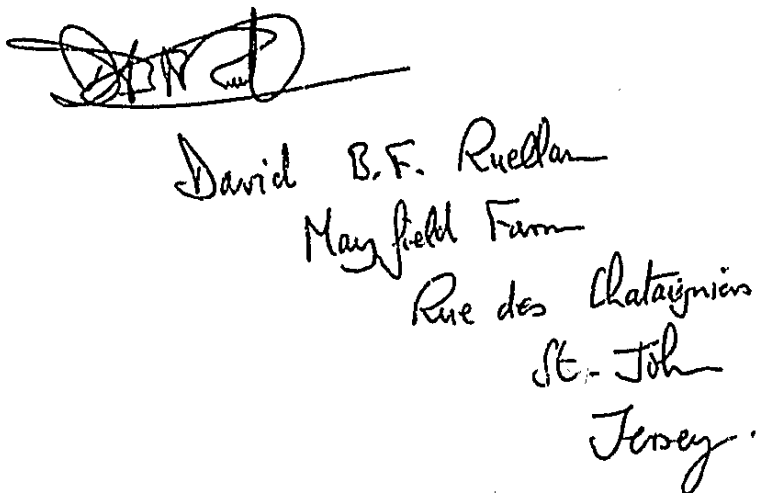 David B.F. Ruellan
Mayfield Farm
Rue des Chataigniers
St. John
Jersey.